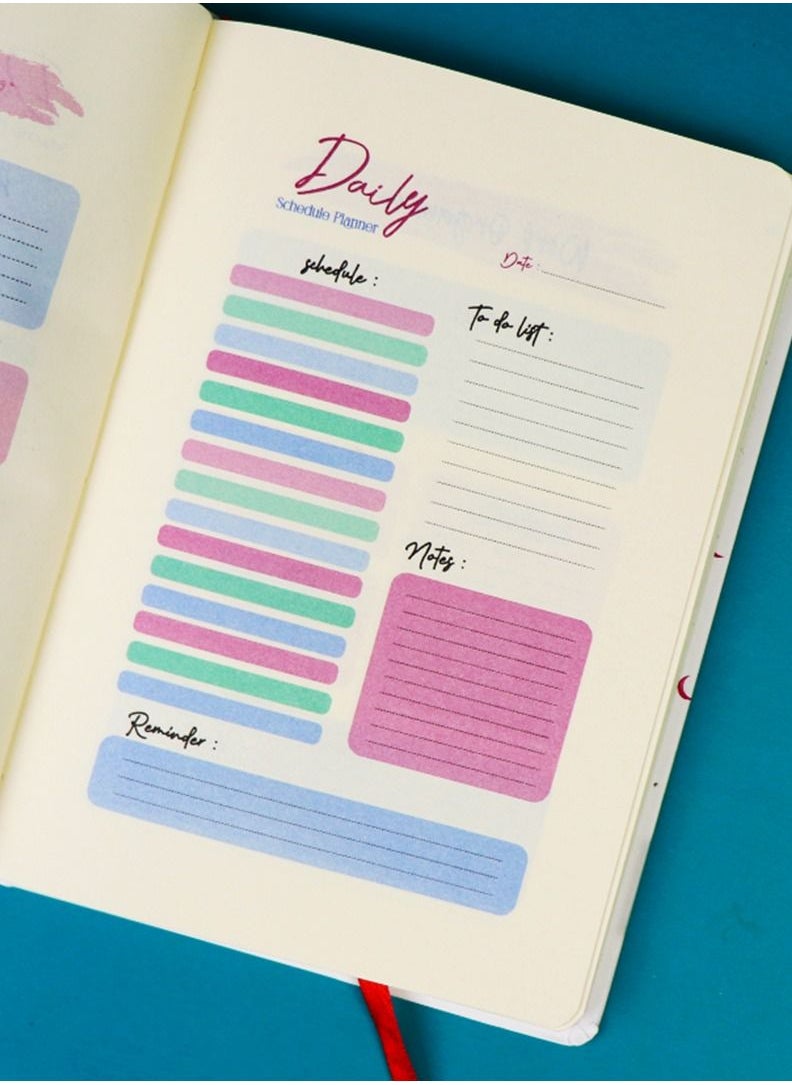 Daily
Schedule Planner
Date :
schedule :
To do list :
Notes :
Reminder :